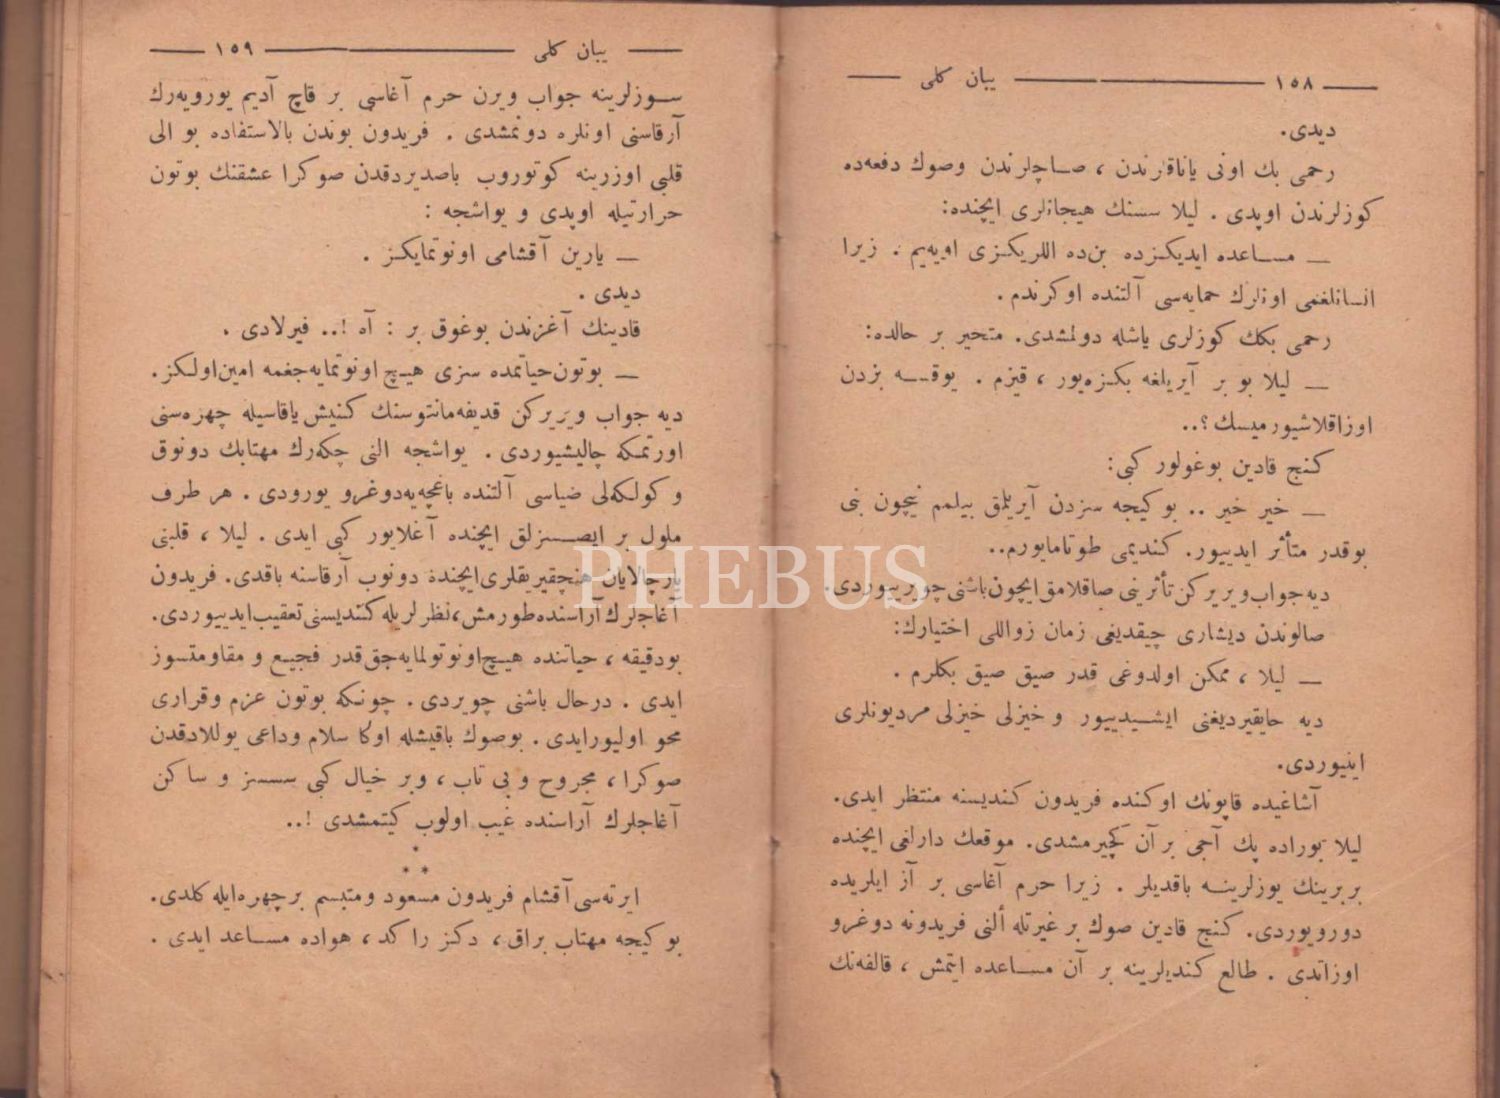 ١٥٨ يبان كلى
ديدى.
رحمى بك اونى ياناقلرندن ، صاچلرندن وصوك دفعه‌ده
كوزلرندن اوپدى . ليلا سسنك هيجانلرى ايچنده:
ــ مساعده ايديكزده بن‌ده اللريكزى اوپه‌يم . زيرا
انسانلغمى اونلرك حمايه‌سى آلتنده اوكرندم .
رحمى بكك كوزلرى ياشله دولمشدى. متحير بر حالده:
ــ ليلا بو بر آيريلغه بكزه‌يور ، قيزم . يوقسه بزدن
اوزاقلاشيورميسك ؟..
كنج قادين بوغولور كبى:
ــ خير خير .. بو كيجه سزدن آيريلمق بيلمم نيچون بنى
بوقدر متأثر ايدييور. كنديمى طوتامايورم..
ديه جواب ويريركن تأثرينى صاقلامق ايچون باشنى چويرييوردى.
صالوندن ديشارى چيقديغى زمان زواللى اختيارك:
ــ ليلا ، ممكن اولدوغى قدر صيق صيق بكلرم .
ديه حايقيرديغنى ايشيدييور و خيزلى خيزلى مرديونلرى
اينيوردى.
آشاغيده قاپونك اوكنده فريدون كنديسنه منتظر ايدى.
ليلا بوراده پك آجى بر آن كچيرمشدى. موقعك دارلغى ايچنده
بربرينك يوزلرينه باقديلر . زيرا حرم آغاسى بر آز ايلريده
دورويوردى. كنج قادين صوك بر غيرتله ألنى فريدونه دوغرو
اوزاتدى . طالع كنديلرينه بر آن مساعده ايتمش ، قالفه‌نك
يبان كلى ١٥٩
سوزلرينه جواب ويرن حرم آغاسى بر قاچ آديم يورويه‌رك
آرقاسنى اونلره دونمشدى . فريدون بوندن بالاستفاده بو الى
قلبى اوزرينه كوتوروب باصديردقدن صوكرا عشقنك بوتون
حرارتيله اوپدى و يواشجه :
ــ يارين آقشامى اونوتمايكز .
ديدى .
قادينك آغزندن بوغوق بر : آه !.. فيرلادى .
ــ بوتون حياتمده سزى هيچ اونوتمايه‌جغمه امين اولكز.
ديه جواب ويريركن قديفه مانتوسنك كنيش ياقاسيله چهره‌سنى
اورتمكه چاليشيوردى . يواشجه النى چكه‌رك مهتابك دونوق
و كولكه‌لى ضياسى آلتنده باغچه‌يه دوغرو يورودى . هر طرف
ملول بر ايصسزلق ايچنده آغلايور كبى ايدى . ليلا ، قلبنى
پارچالايان هنچقيريقلرى ايچنده دونوب آرقاسنه باقدى. فريدون
آغاجلرك آراسنده طورمش، نظرلريله كنديسنى تعقيب ايدييوردى.
بودقيقه ، حياتنده هيچ اونوتولمايه‌جق قدر فجيع و مقاومتسوز
ايدى . درحال باشنى چويردى . چونكه بوتون عزم وقرارى
محو اوليور ايدى . بوصوك باقيشله اوكا سلام وداعى يوللادقدن
صوكرا ، مجروح و بى تاب ، وبر خيال كبى سسسز و ساكن
آغاجلرك آراسنده غيب اولوب كيتمشدى !..
*
* *
ايرته‌سى آقشام فريدون مسعود ومتبسم بر چهره ايله كلدى.
بو كيجه مهتاب براق، دكز راكد ، هواده مساعد ايدى .
PHEBUS